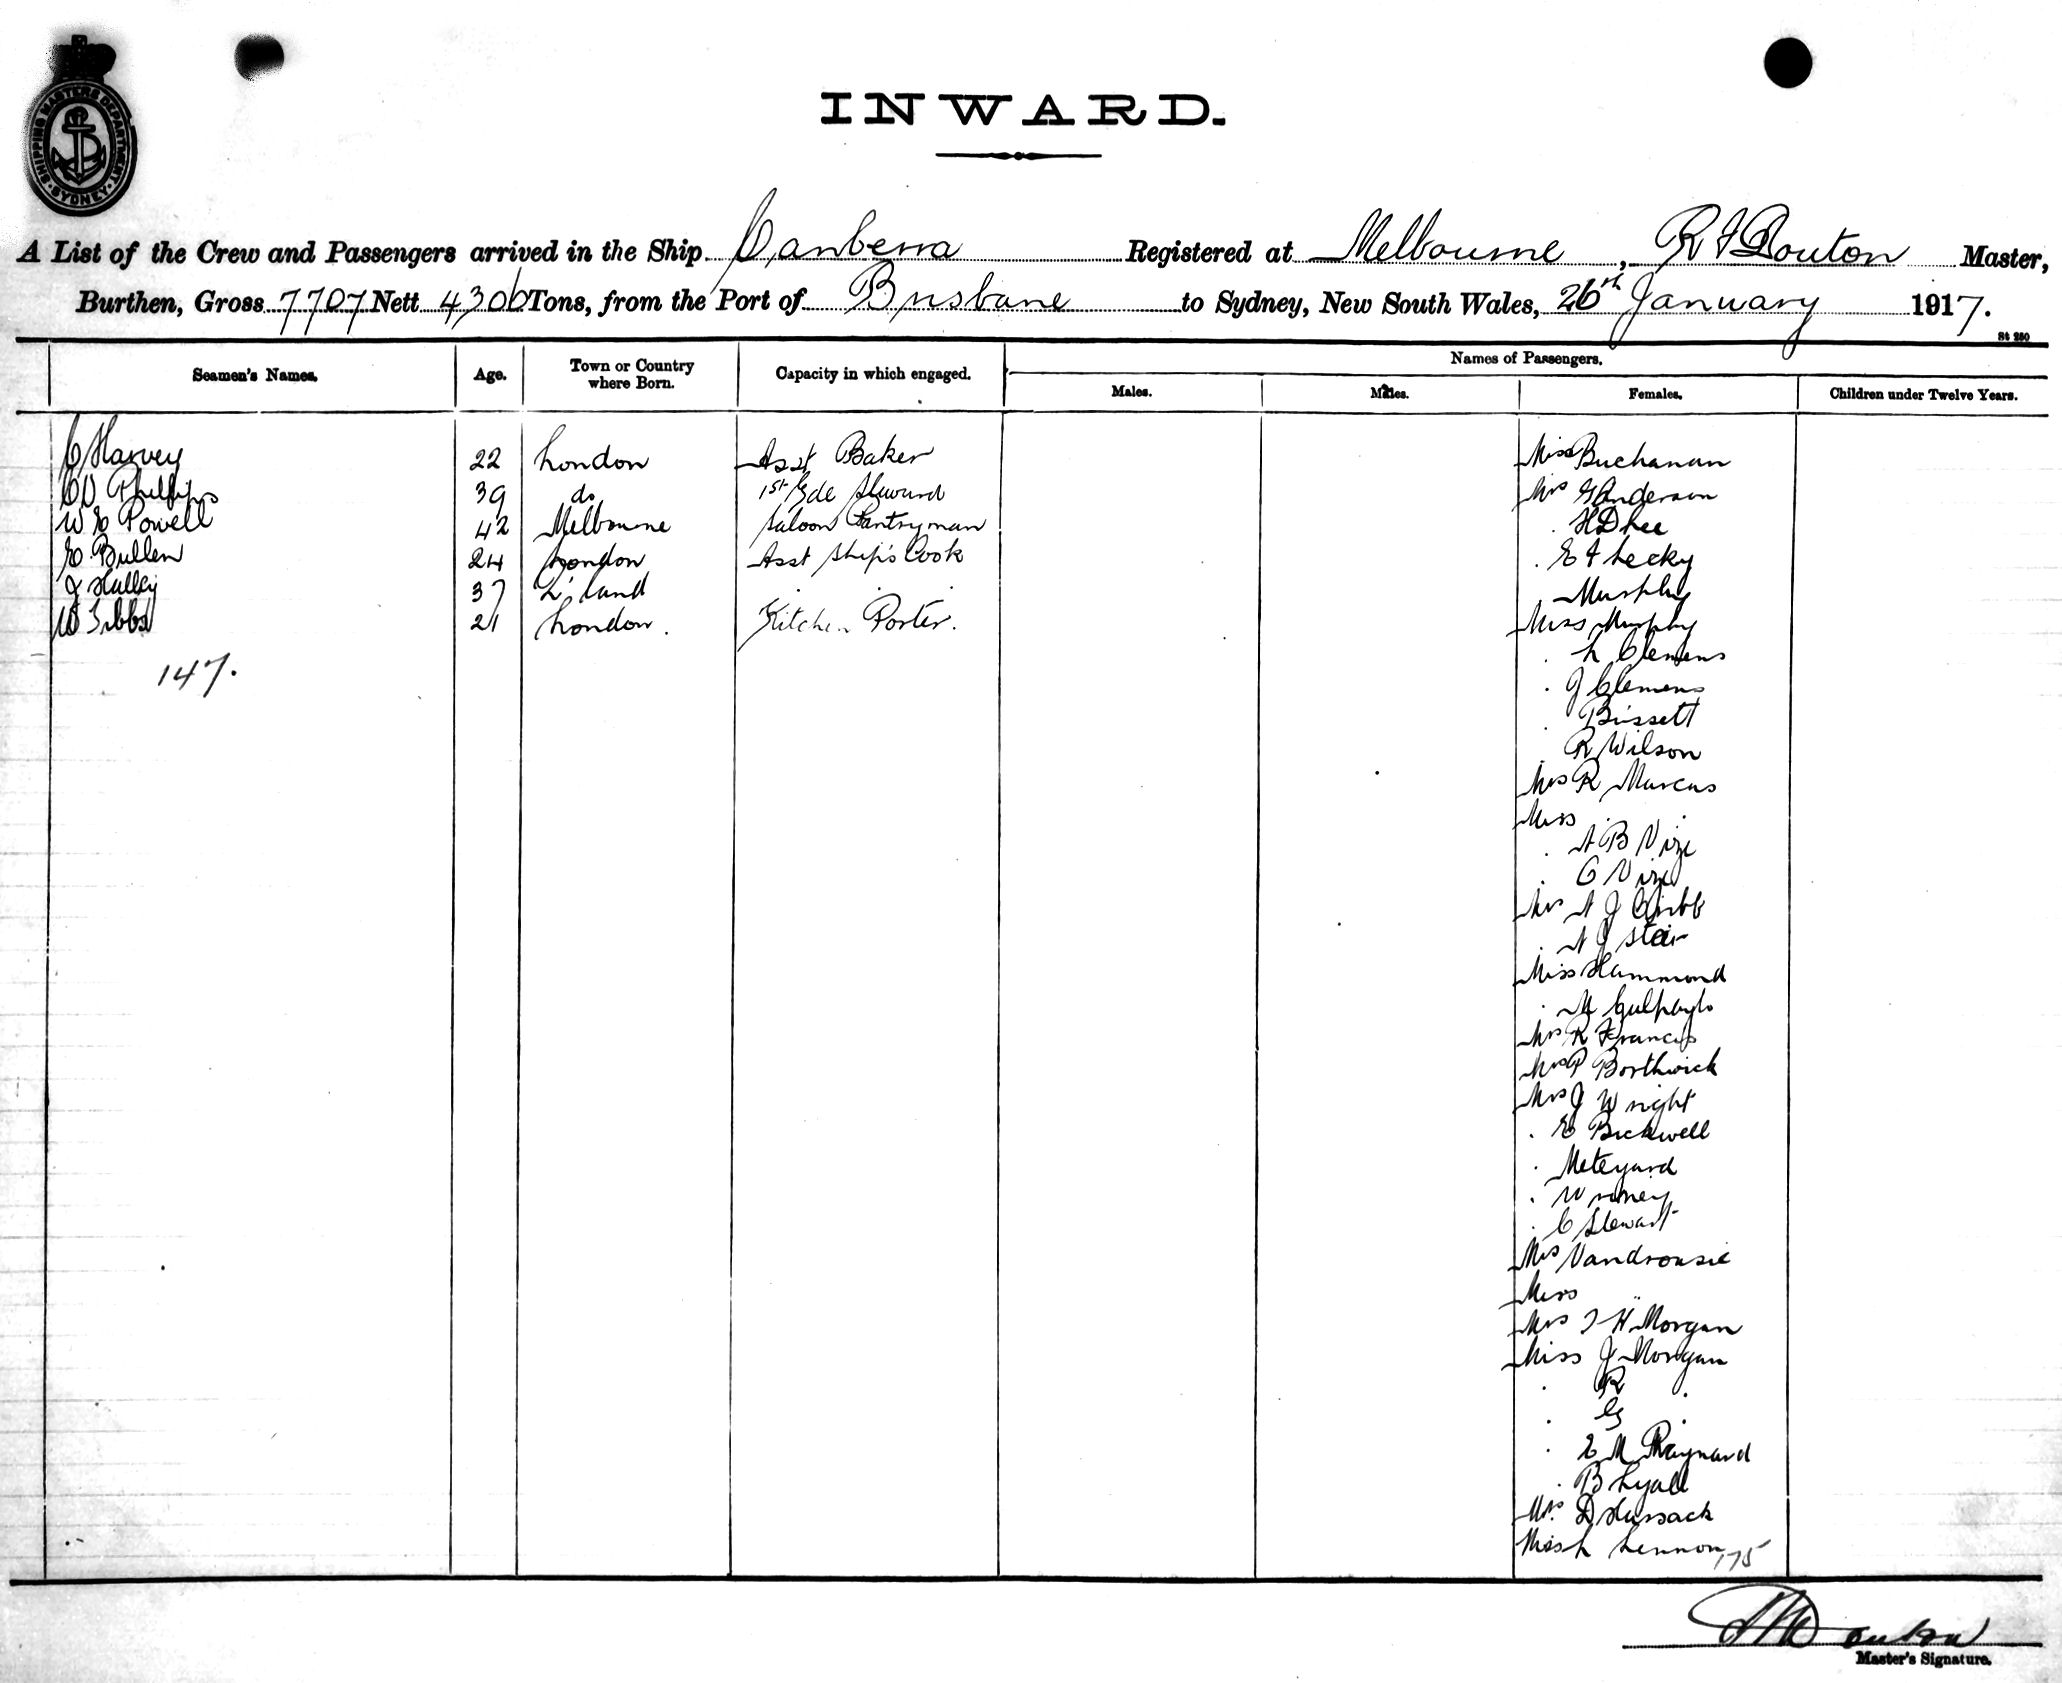 SHIPPING MASTERS DEPARTMENT
SYDNEY
INWARD.
A List of the Crew and Passengers arrived in the Ship Canberra Registered at Melbourne, R F Douton Master,
Burthen, Gross 7707 Nett 4306 Tons, from the Port of Brisbane to Sydney, New South Wales, 26th January 1917.
St 280
Seamen's Names. Age. Town or Country where Born. Capacity in which engaged. Names of Passengers.
Males. Males. Females. Children under Twelve Years.
C Harvey 22 London Asst Baker Miss Buchanan
Phillips 39 do 1st Gde Steward Mrs G Anderson
W E Powell 42 Melbourne Saloon Pantryman . H D Lee
E Bullen 24 London Asst Ship's Cook . E F Lecky
J 37 Z'land . Murphy
W Gibbs 21 London. Kitchen Porter. Miss Murphy
147. . L Clemens
. J Clemens
. Bissett
. R Wilson
Mrs R Marcus
Miss .
. A B Vize
. C Vize
Mrs A J Cribb
. A J Stair
Miss Hammond
. M
Mrs R Francis
Mrs P Borthwick
Mrs J Wright
. E Bickwell
. Meteyard
.
. C Stewart
Mrs Vandrousie
Miss "
Mrs T H Morgan
Miss J Morgan
. R .
. G .
. E M Maynard
. B Lyall
Mrs D Hussack
Miss L Lennon 175
Master's Signature.